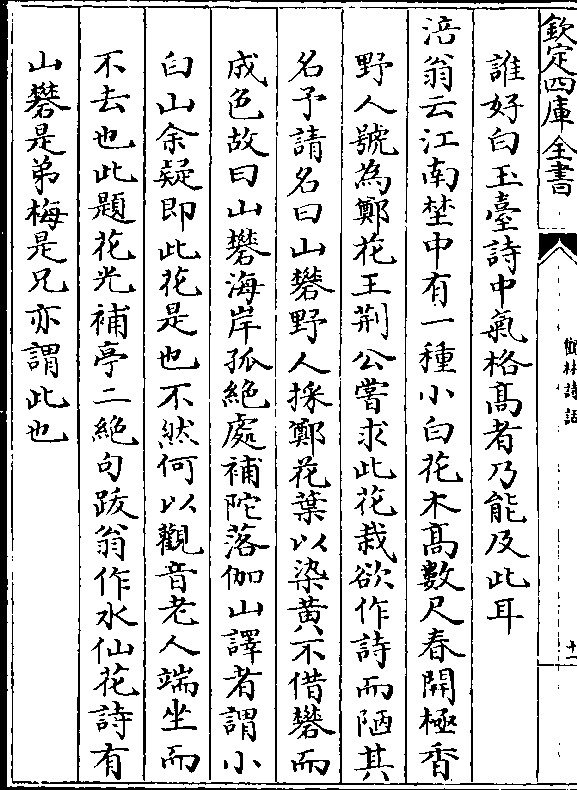 欽定四庫全書
艇林詩話
十一
誰好白玉臺詩中氣格髙者乃能及此耳
涪翁云江南埜中有一種小白花木髙數尺春開極香
野人號為鄭花王荆公嘗求此花栽欲作詩而陋其
名予請名曰山礬野人採鄭花葉以染黄不借礬而
成色故曰山礬海岸孤絶處補陀落伽山譯者謂小
白山余疑即此花是也不然何以觀音老人端坐而
不去也此題花光補亭二絶句䟦翁作水仙花詩有
山礬是弟梅是兄亦謂此也